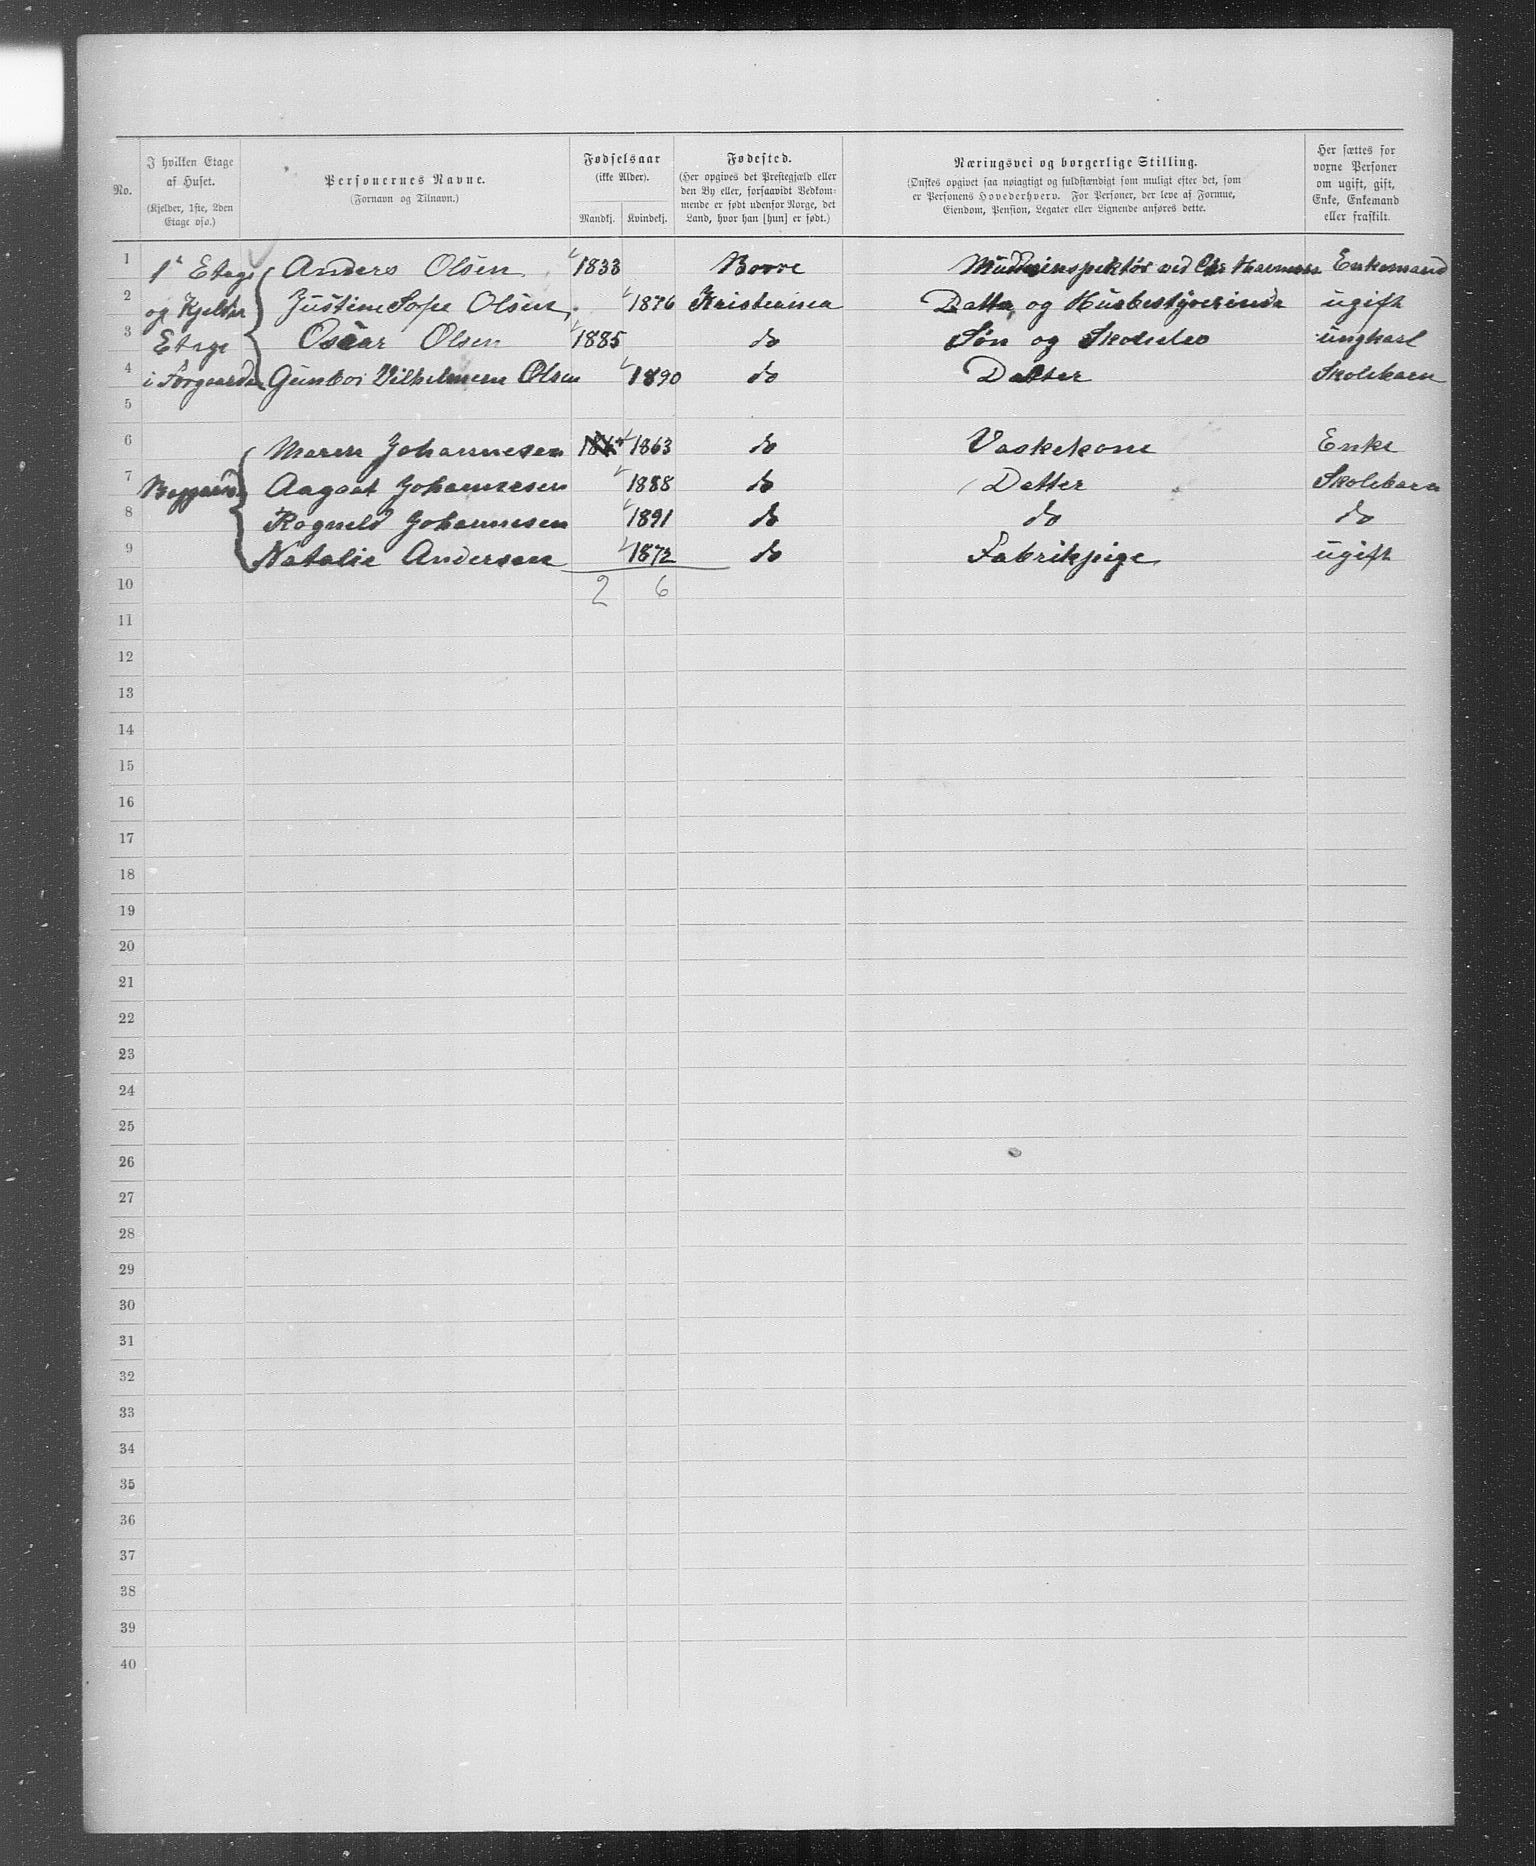 No. I hvilken Etage af Huset. (Kjelder, 1ste, 2den Etage osv.) Personernes Navne. (Fornavn og Tilnavn.) Fødselsaar (ikke Alder). Mandkj. Kvindekj. Fødested. (Her opgives det Præstegjæld eller den By eller, forsaavidt Vedkommende er født udenfor Norge, det Land, hvor han [hun] er født.) Næringsvei og borgerlige Stilling. (Ønskes opgivet saa nøiagtigt og fuldstændigt som muligt efter det, som er Personens Hovederhverv. For Personer, der leve af Formue, Eiendom, Pension, Legater eller Lignende anføres dette. Her sættes for voxne Personer om ugift, gift, Enke, Enkemand eller fraskilt.
1 1ª Etage Anders Olsen 1833 Borre Mudderinspektør ved Chr Havnevæsen Enkemand
2 og Kjelder Justine Sofie Olsen 1876 Kristiania Datter og Husbestyrerinde ugift
3 Etage Oscar Olsen 1885 do Søn og Skoleelev ungkarl
4 i Forgaarden Gunbor Vilhelmine Olsen 1890 do Datter Skolebarn
5
6 Maren Johannesen 1863 do Vaskekone Enke
7 Baggaard Aagoat Johannesen 1888 do Datter Skolebarn
8 Ragnild Johannesen 1891 do do do
9 Natalie Andersen 1872 do Fabrikpige ugift
10 2 6
11
12
13
14
15
16
17
18
19
20
21
22
23
24
25
26
27
28
29
30
31
32
33
34
35
36
37
38
39
40